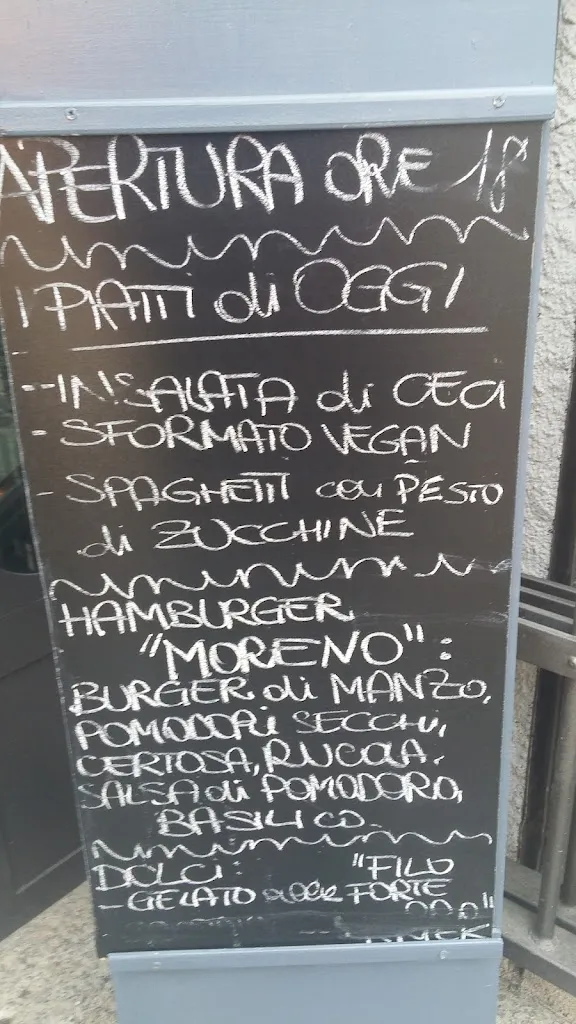 APERTURA ORE 18
I PIATTI di OGGI
- INSALATA di CECI
- SFORMATO VEGAN
- SPAGHETTI con PESTO
di ZUCCHINE
HAMBURGER
"MORENO":
BURGER di MANZO,
POMODORI SECCHI,
CERTOSA, RUCOLA,
SALSA di POMODORO,
BASILICO
DOLCI: "FILO
- GELATO FORTE